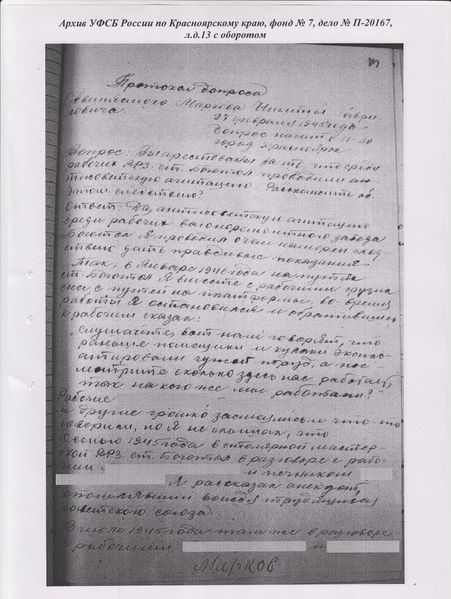 Архив УФСБ России по Красноярскому краю, фонд № 7, дело № П-20167,
л.д.13 с оборотом
Протокол допроса
обвиняемого Маркова Никиты Гаври-
ловича.
27 февраля 1946 года
допрос начат в
город Красноярск
Вопрос: Вы арестованы за то, что среди
рабочих ВРЗ ст. Боготол проводили ан-
тисоветскую агитацию. Расскажите об
этом следствию?
Ответ: Да, антисоветскую агитацию
среди рабочих вагоноремонтного завода
Боготол я проводил о чем намерен след-
ствию дать правдивые показания
Так, в январе 1946 года на путях
ст. Боготол я вместе с рабочими грузил
снег с путей на платформы, во время
работы я остановился и обратившись
к рабочим сказал:
слушайте, вот нам говорят, что
раньше помещики и кулаки эксплу-
атировали чужой труд, а пос
мотрите сколько здесь нас работает,
так на кого же мы работаем?
Рабочие
и другие громко засмеялись и что-то
говорили, но я не слышал, что
Осенью 1945 года в столярной мастер
ской ВРЗ. ст. Боготол в разговоре с рабо-
чим и печником
Я рассказал анекдот,
опошляющий вождя трудящихся
советского союза.
В июле 1945 года там же в разговоре
с рабочими и
Марков